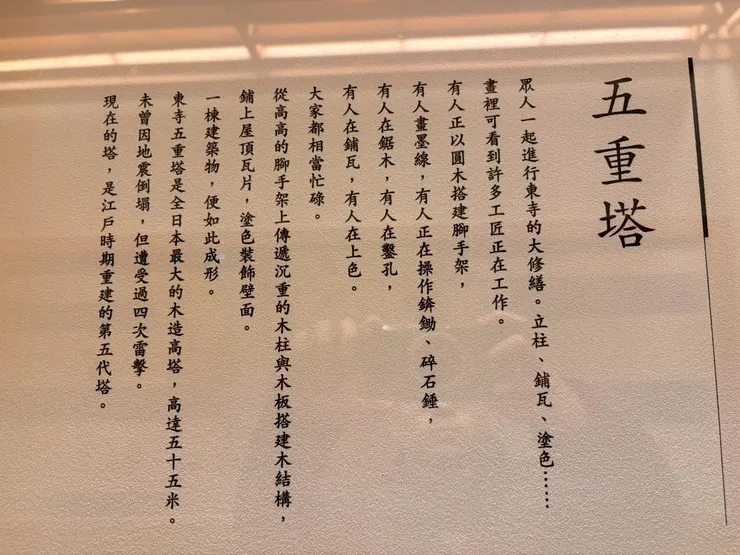 五重塔
眾人一起進行東寺的大修繕。立柱、鋪瓦、塗色……
畫裡可看到許多工匠正在工作。
有人正以圓木搭建腳手架，
有人畫墨線，有人正在操作錛鋤、碎石錘，
有人在鋸木，有人在鑿孔，
有人在鋪瓦，有人在上色。
大家都相當忙碌。
從高高的腳手架上傳遞沉重的木柱與木板搭建木結構，
鋪上屋頂瓦片，塗色裝飾壁面。
一棟建築物，便如此成形。
東寺五重塔是全日本最大的木造高塔，高達五十五米。
未曾因地震倒塌，但遭受過四次雷擊。
現在的塔，是江戶時期重建的第五代塔。